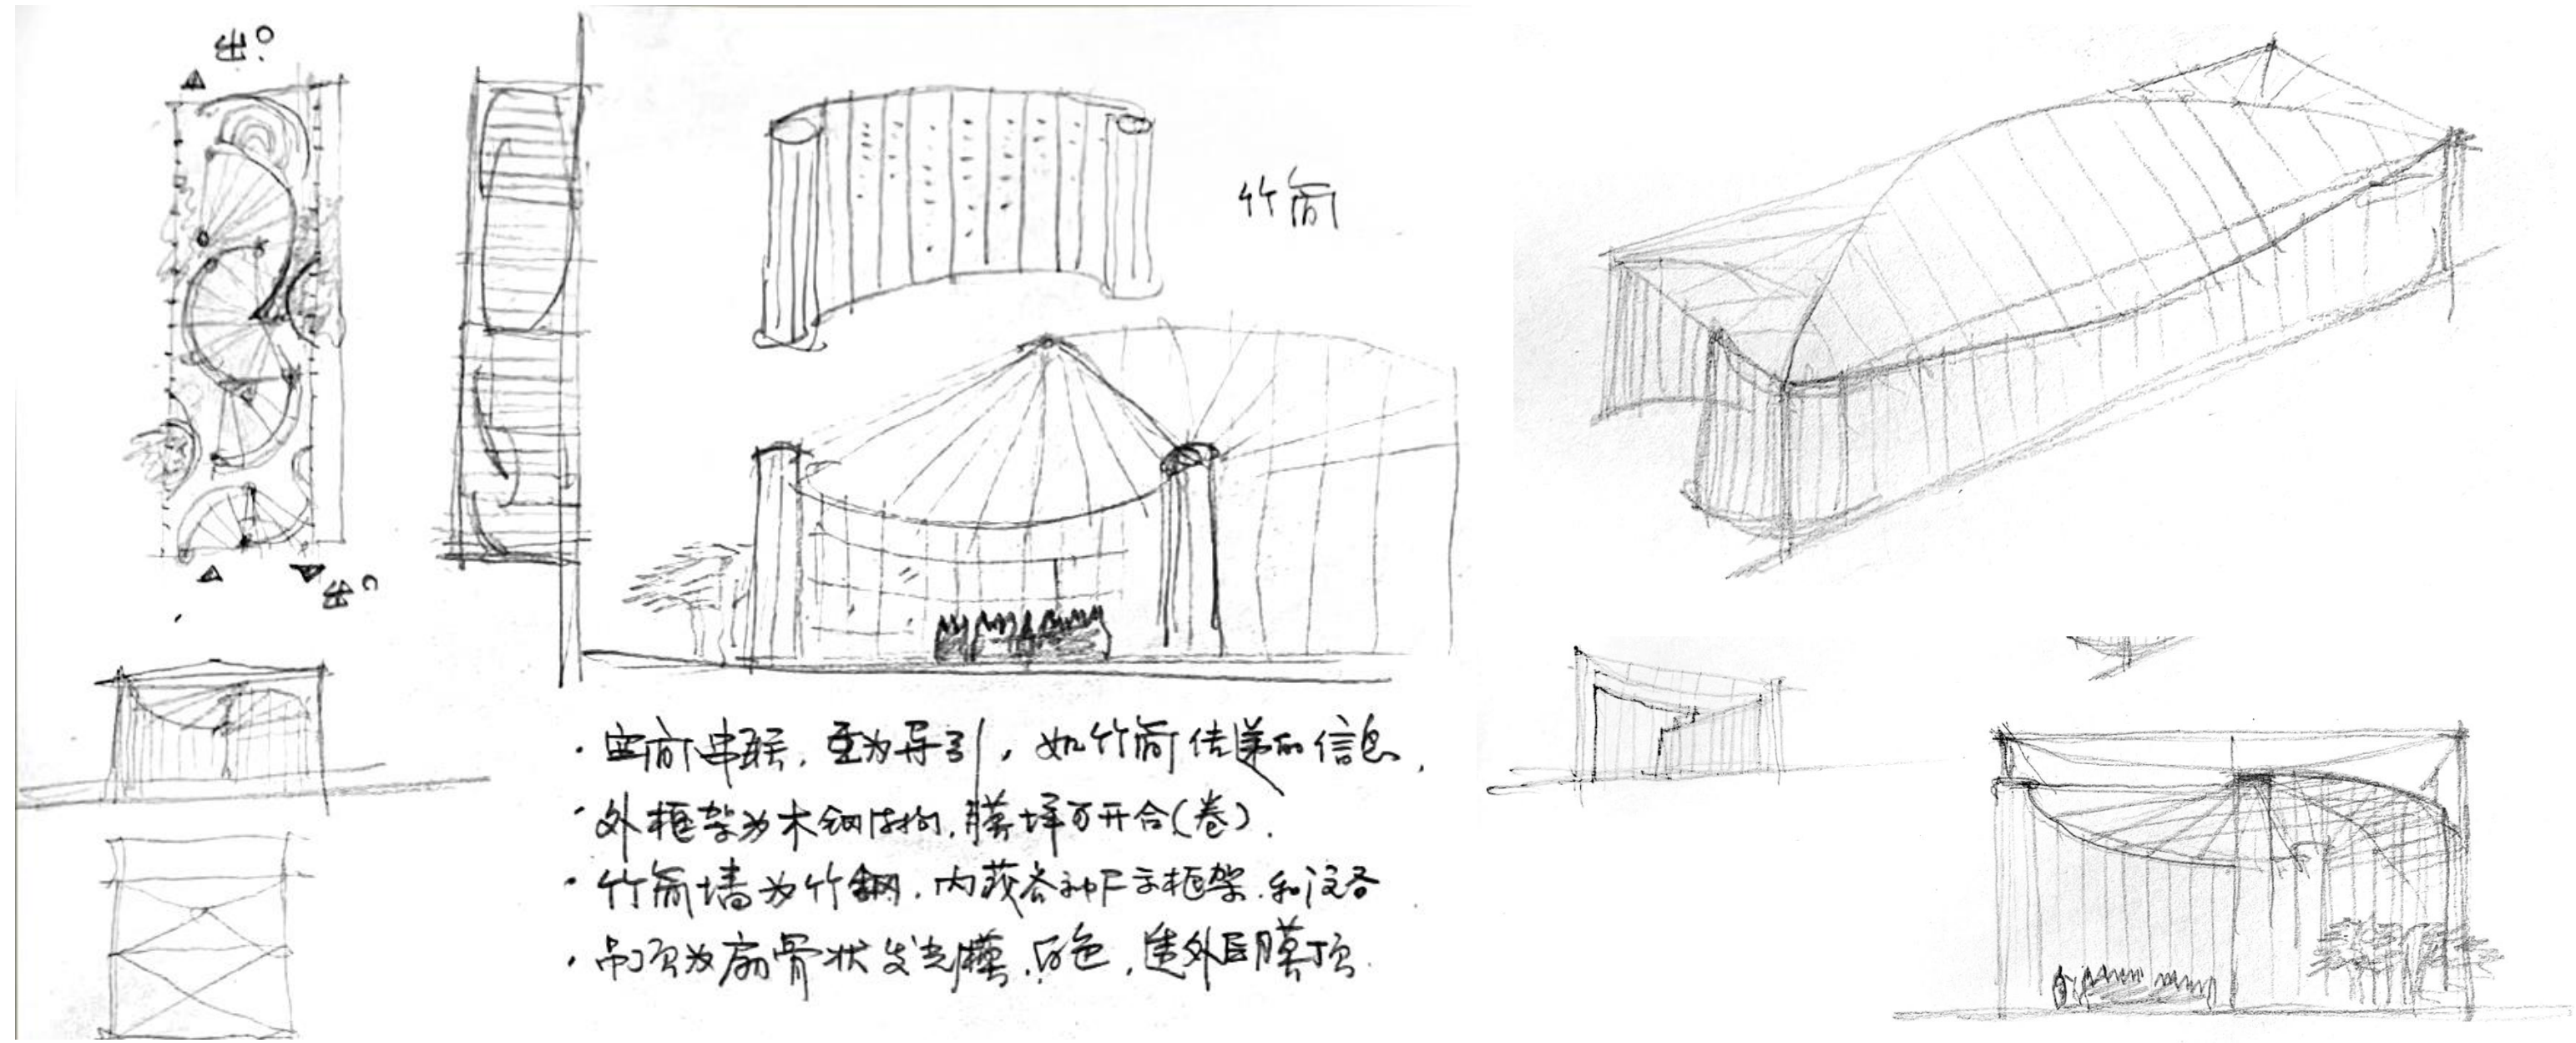 出口
竹简
出口
· 空间串联，互为导引，如竹简传递的信息．
· 外框架为木钢结构，膜墙可开合（卷）．
· 竹简墙为竹钢，内藏各种展示框架和设备
· 吊顶为扇骨状发光膜，白色，连外层膜顶．